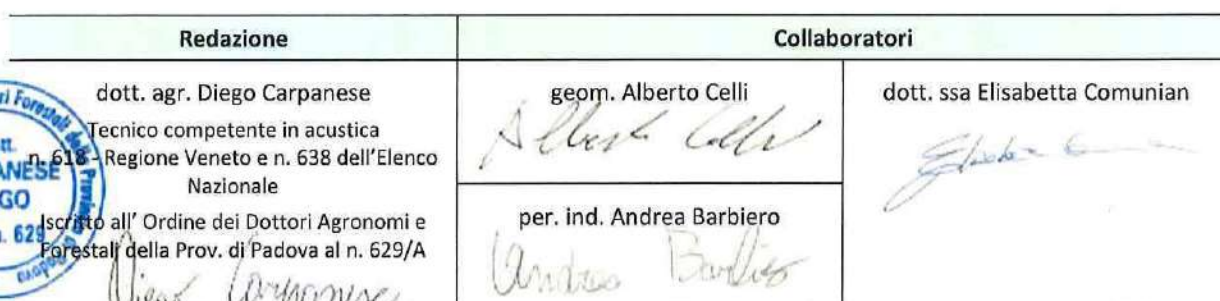 Redazione
Collaboratori
dott. agr. Diego Carpanese
Tecnico competente in acustica
n. 618 - Regione Veneto e n. 638 dell'Elenco
Nazionale
Iscritto all' Ordine dei Dottori Agronomi e
Forestali della Prov. di Padova al n. 629/A
Diego Carpanese
geom. Alberto Celli
Alberto Celli
per. ind. Andrea Barbiero
Andrea Barbiero
dott. ssa Elisabetta Comunian